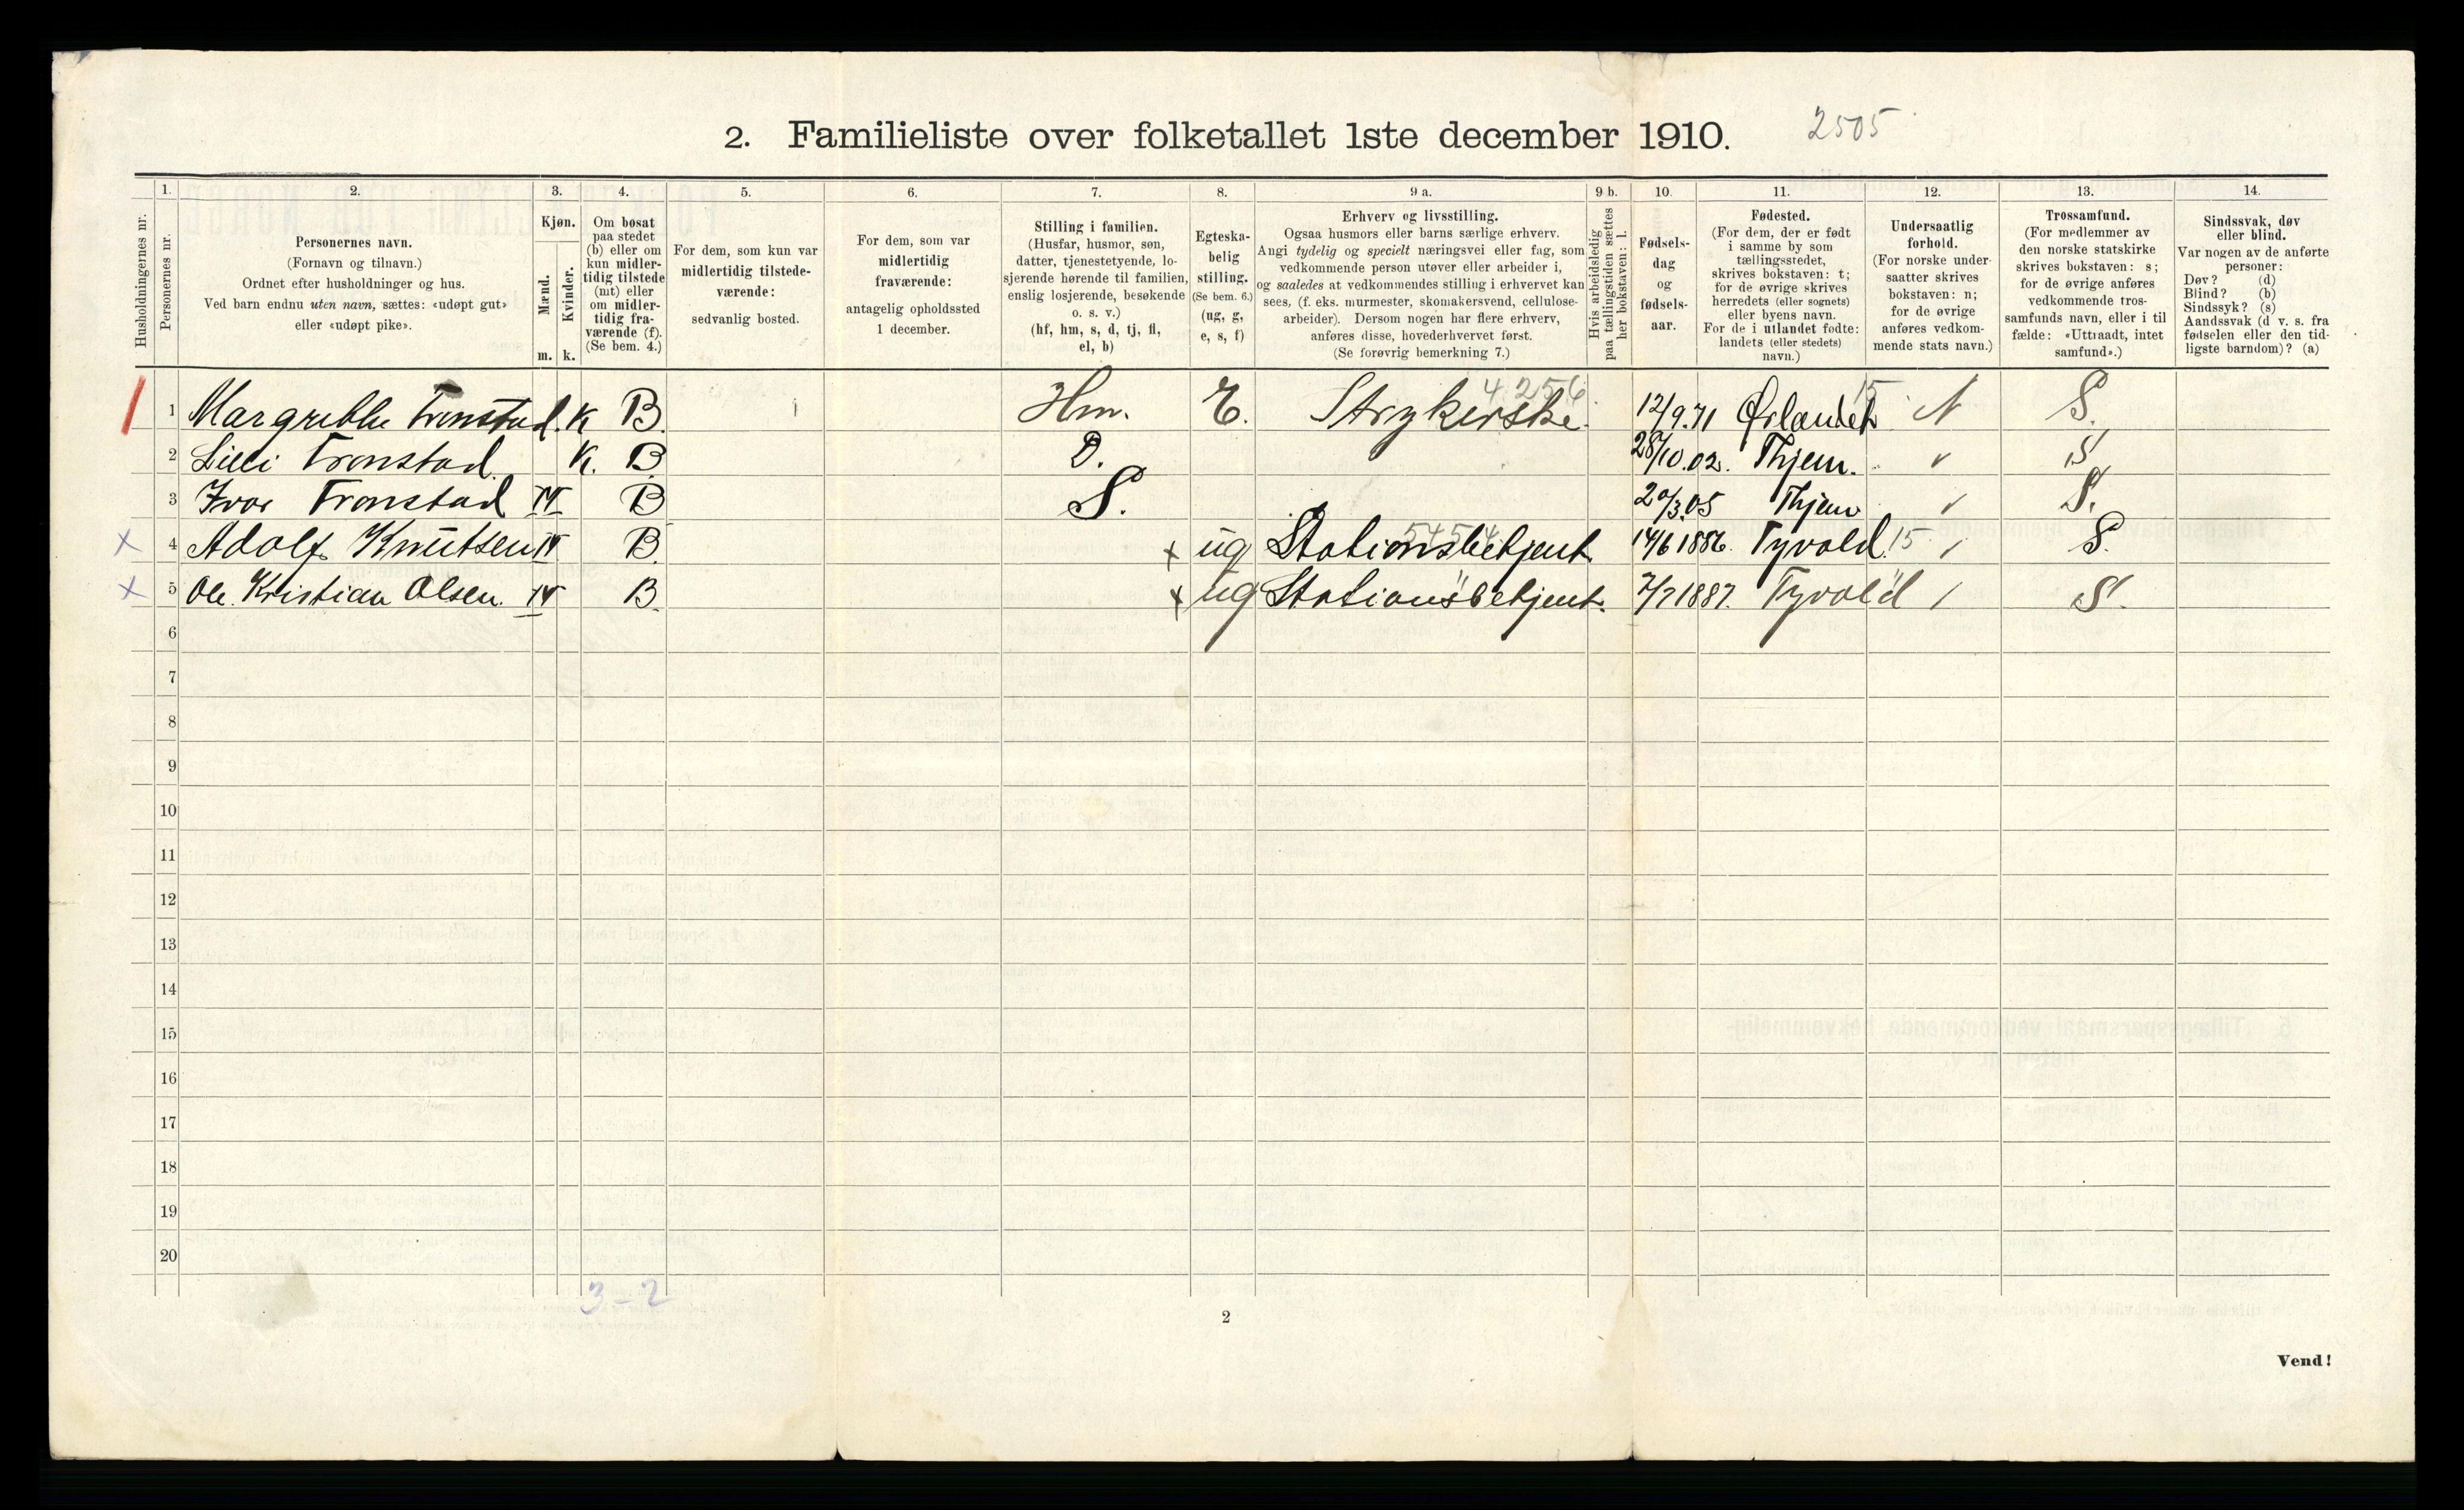 2. Familieliste over folketallet 1ste december 1910. 2505
1. 2. 3. 4. 5. 6. 7. 8. 9 a. 9 b. 10. 11. 12. 13. 14.
Husholdningernes nr.
Personernes nr.
Personernes navn.
(Fornavn og tilnavn.)
Ordnet efter husholdninger og hus.
Ved barn endnu uten navn, sættes: «udøpt gut»
eller «udøpt pike».
Kjøn.
Mænd.
Kvinder.
m. k.
Om bosat
paa stedet
(b) eller om
kun midler-
tidig tilstede
(mt) eller
om midler-
tidig fra-
værende (f).
(Se bem. 4.)
For dem, som kun var
midlertidig tilstede-
værende:
sedvanlig bosted.
For dem, som var
midlertidig
fraværende:
antagelig opholdssted
1 december.
Stilling i familien.
(Husfar, husmor, søn,
datter, tjenestetyende, lo-
sjerende hørende til familien,
enslig losjerende, besøkende
o. s. v.)
(hf, hm, s, d, tj, fl,
el, b)
Egteska-
belig
stilling.
(Se bem. 6.)
(ug, g,
e, s, f)
Erhverv og livsstilling.
Ogsaa husmors eller barns særlige erhverv.
Angi tydelig og specielt næringsvei eller fag, som
vedkommende person utøver eller arbeider i,
og saaledes at vedkommendes stilling i erhvervet kan
sees, (f. eks. murmester, skomakersvend, cellulose-
arbeider). Dersom nogen har flere erhverv,
anføres disse, hovederhvervet først.
(Se forøvrig bemerkning 7.)
Hvis arbeidsledig
paa tællingstiden sættes
her bokstaven: l.
Fødsels-
dag
og
fødsels-
aar.
Fødested.
(For dem, der er født
i samme by som
tællingsstedet,
skrives bokstaven: t;
for de øvrige skrives
herredets (eller sognets)
eller byens navn.
For de i utlandet fødte:
landets (eller stedets)
navn.)
Undersaatlig
forhold.
(For norske under-
saatter skrives
bokstaven: n;
for de øvrige
anføres vedkom-
mende stats navn.)
Trossamfund.
(For medlemmer av
den norske statskirke
skrives bokstaven: s;
for de øvrige anføres
vedkommende tros-
samfunds navn, eller i til
fælde: «Uttraadt, intet
samfund».)
Sindssvak, døv
eller blind.
Var nogen av de anførte
personer:
Døv? (d)
Blind? (b)
Sindssyk? (s)
Aandssvak (d v. s. fra
fødselen eller den tid-
ligste barndom)? (a)
4256 15
1 Margrethe Tronstad. K B. Hm. E. Strykerske. 12/9.71 Ørlandet N S.
2 Lilli Tronstad. K. B. D. 28/10.02. Thjem. S
3 Ivar Tronstad M B S. 20/3.05 Thjem S.
x 4 Adolf Knutsen M B. x ug Stationsbetjent 5454 14/6 1886. Tyvold. 15 S.
x 5 Ole. Kristian Olsen. M B. x ug Stationsbetjent. 7/7 1887. Tyvold S.
6
7
8
9
10
11
12
13
14
15
16
17
18
19
20
3-2
2
Vend!